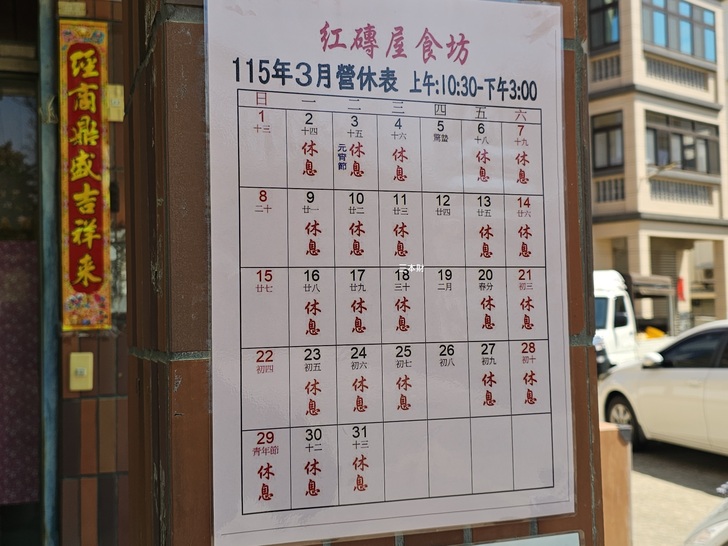 經商鼎盛吉祥來
紅磚屋食坊
115年3月營休表 上午:10:30-下午3:00
日 一 二 三 四 五 六
1 2 3 4 5 6 7
十三 十四 十五 十六 驚蟄 十八 十九
休息 元宵節 休息 休息 休息 休息
8 9 10 11 12 13 14
二十 廿一 廿二 廿三 廿四 廿五 廿六
休息 休息 休息 休息 休息
15 16 17 18 19 20 21
廿七 廿八 廿九 三十 二月 春分 初三
休息 休息 休息 休息 休息
22 23 24 25 26 27 28
初四 初五 初六 初七 初八 初九 初十
休息 休息 休息 休息 休息
29 30 31
青年節 十二 十三
休息 休息 休息